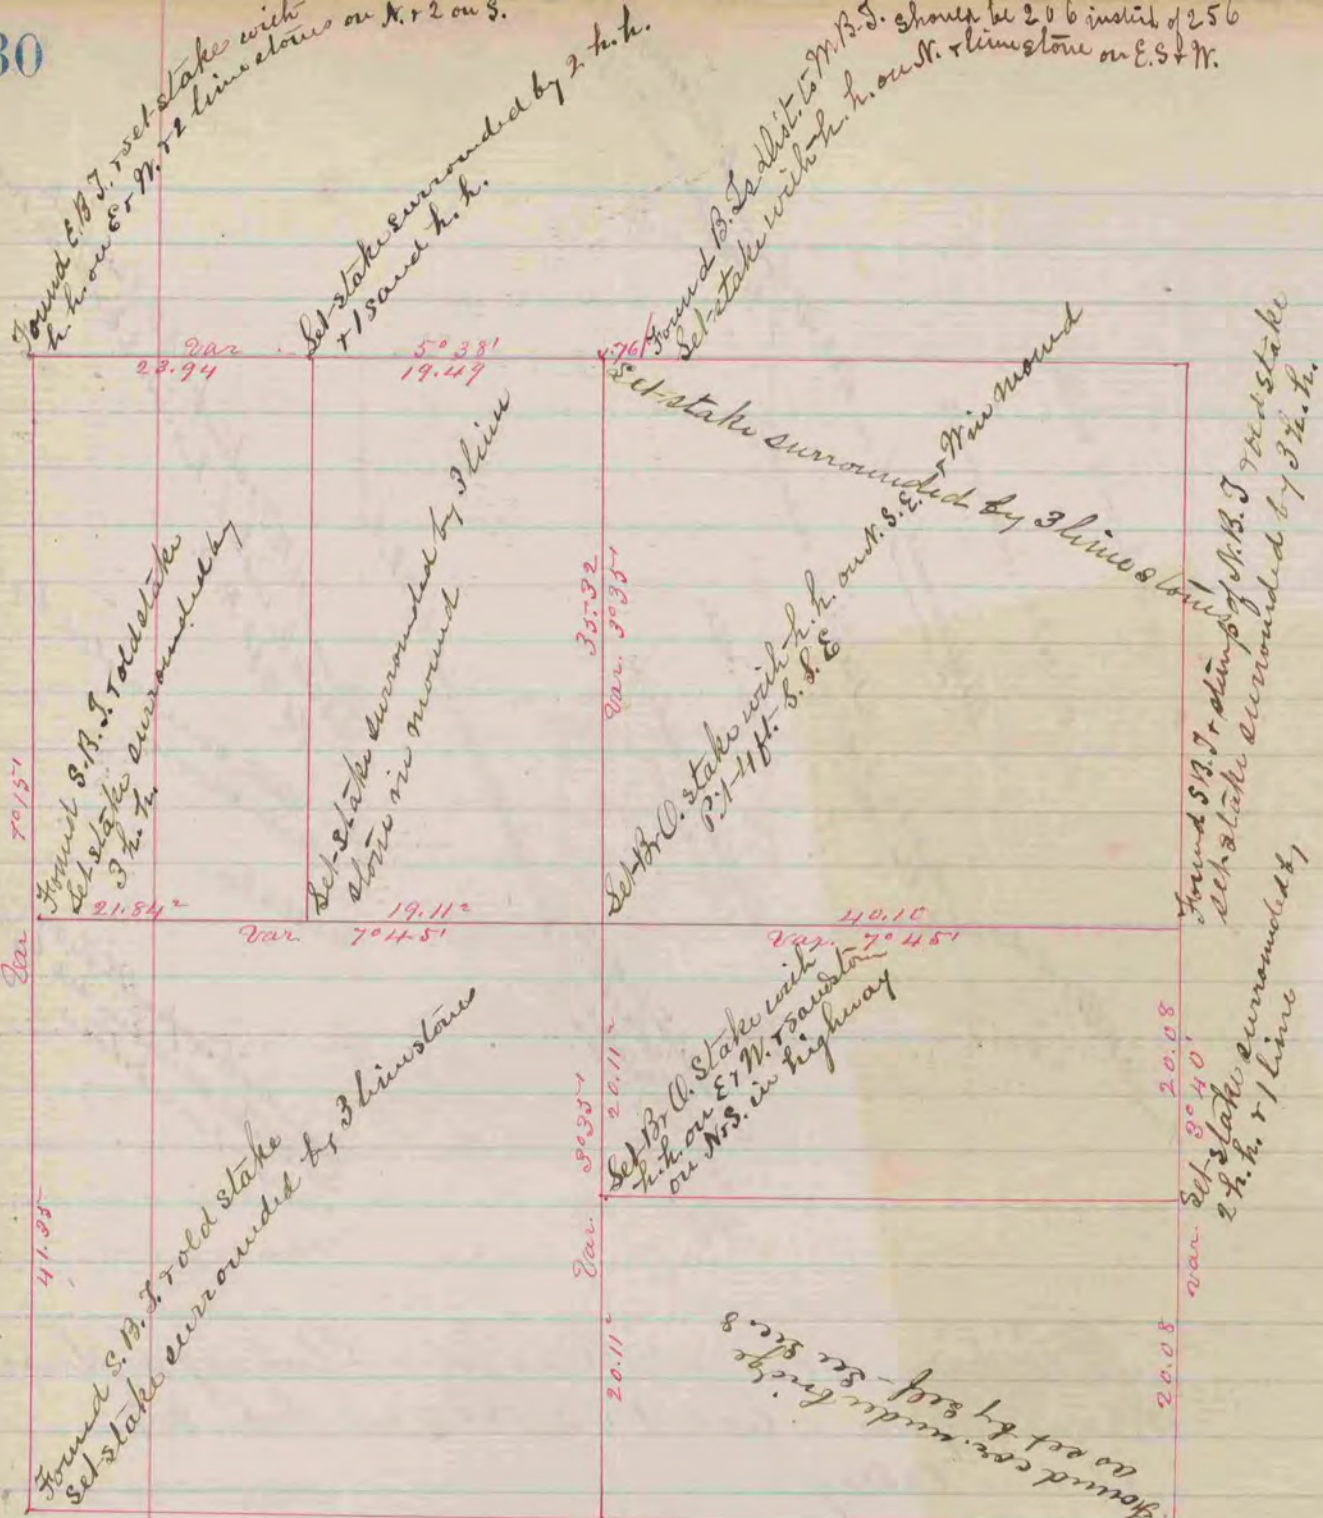 30
Found E.B.T. & set stake with
h.h. on E & W. & 2 limestones on N. & 2 on S.
Set stake surrounded by 2 h.h.
& 1 sand h.h.
Found B.Ts dist. to M B.T. should be 206 instid of 256
Set stake with h.h. on N. & limestone on E. S & W.
Var
23.94
5° 38'
19.49
.76
Set stake surrounded by 3 limestones
Found S.B.T. & old stake
Set stake surrounded by
3 h.h.
Set stake surrounded by 3 lime
stones in mound
35.32
Var. 3° 35'
Set Br. O. stake with h.h. on N. S. E. & W in mound
Pit 4 ft. S. S. E
Found S B.T. & stump of N.B.T & old stake
set stake surrounded by 3 h.h.
Var 7° 15'
21.84 2
19.11 2
Var. 7° 45'
40.10
Var. 7° 45'
Set Br. O. Stake with
h.h. on E & W. & sandstone
on N & S. in highway
3° 35' 20.11 2
Set stake surrounded by
2 h.h. & 1 lime
20.08
Var. 3° 40'
Found S.B.T. & old stake
Set stake surrounded by 3 limestones
41.35
Var.
20.11 2
Found cor. under bridge
as set by self - See Sec 8
20.08